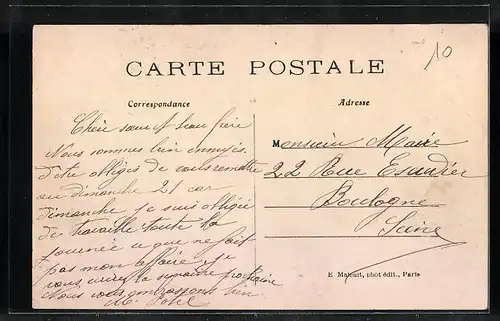 10
CARTE POSTALE
Correspondance
Adresse
Chère sœur et beau frère
Nous sommes bien ennuyés
d'être obligés de vous remettre
au dimanche 21 car
dimanche je suis obligée
de travaille toute la
journée ce que ne fait
pas mon affaire, je
vous écrirai la semaine prochaine
Nous vous embrassons bien
M.
Monsieur Maire
22 Rue Escudier
Boulogne
Seine
E Malcuit, phot édit., Paris